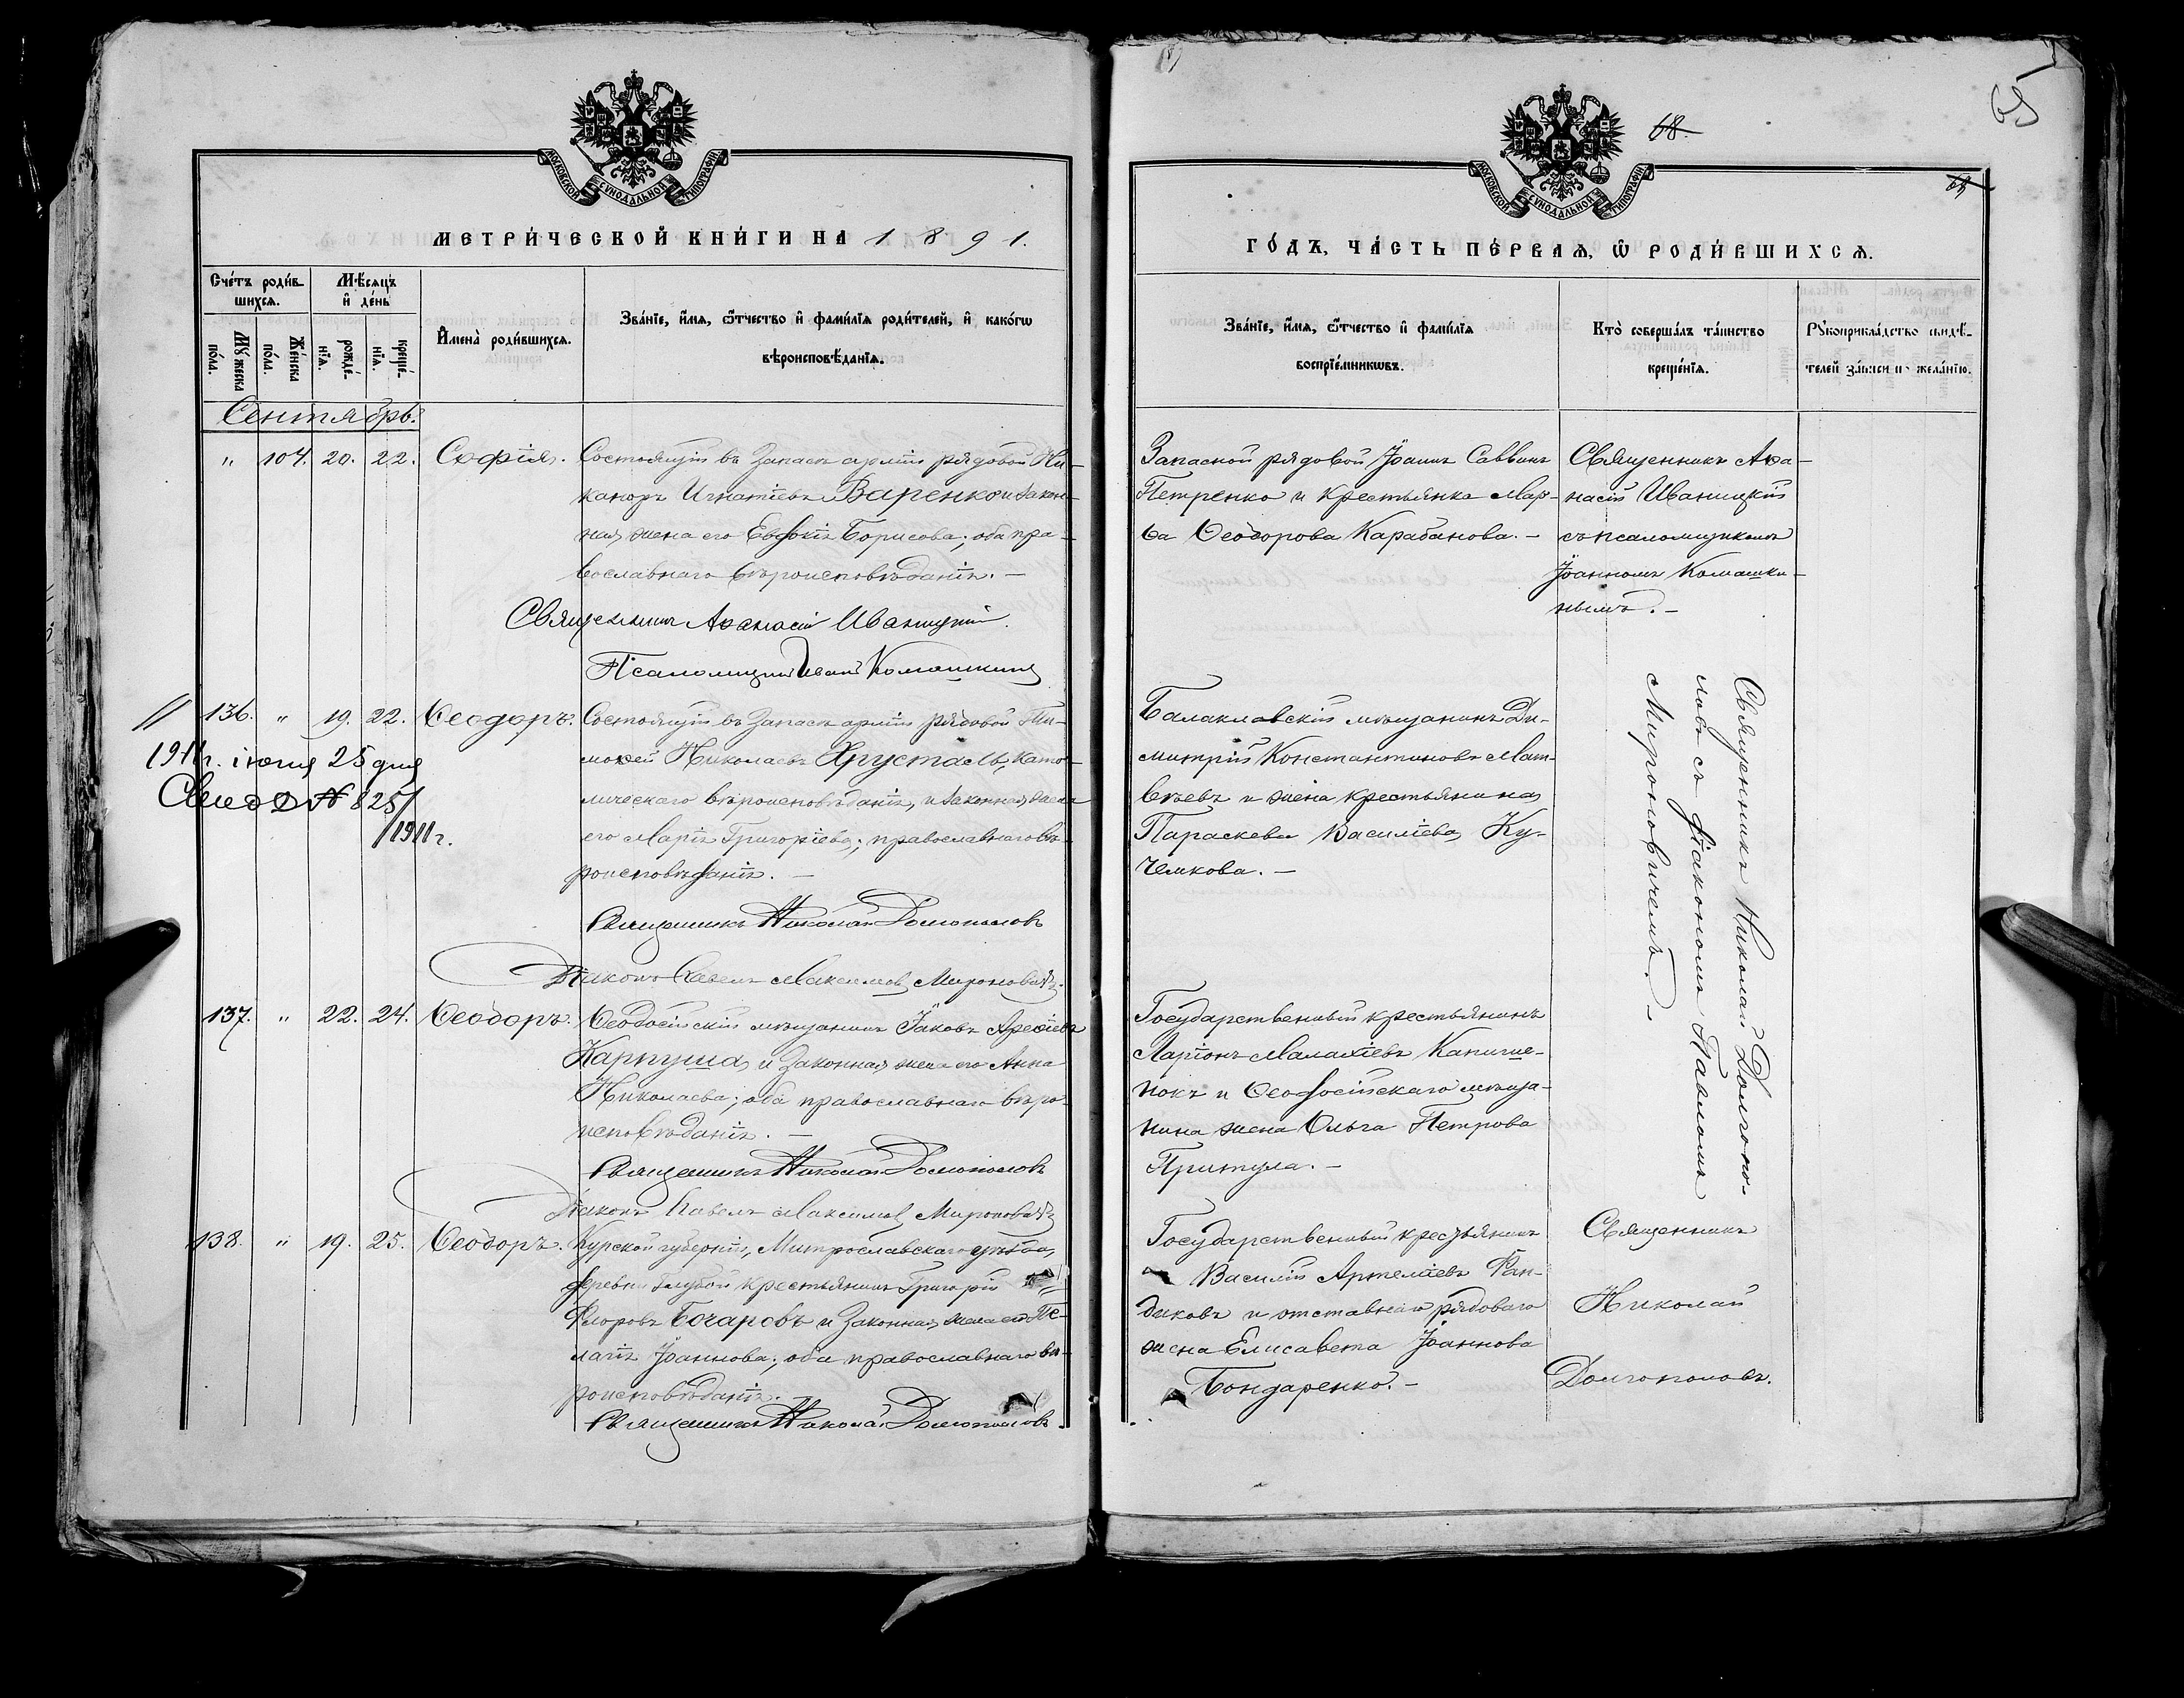 68.
65
МОСКОВСКОЙ СѴНОДАЛЬНОЙ ТИПОГРАФІИ
МОСКОВСКОЙ СѴНОДАЛЬНОЙ ТИПОГРАФІИ
МЕТРИ́ЧЕСКОЙ КНИ́ГИ НА 1891.
Сче́тъ роди́в-
шихсѧ.
Мꙋ́жеска по́ла.
Же́нска по́ла.
Мѣ́сѧцъ и҆ де́нь
рожде́-нїѧ.
креще́-нїѧ.
И҆мена̀ роди́вшихсѧ.
Зва́нїе, и҆́мѧ, ѻ҆́тчество и҆ фами́лїѧ роди́телей, и҆ како́гѡ
вѣроисповѣ́данїѧ.
Сентябрь.
" 104. 20. 22. Софія. Состоящій въ Запасѣ арміи рядовой Ни-
каноръ Игнатіевъ Варенко и закон-
ная жена его Евдокія Борисова; оба пра-
вославнаго вѣроисповѣданія. —
Священникъ Аѳанасій Иваницкій.
Псаломщикъ Иванъ Комашкинъ
136. " 19. 22. Ѳеодоръ. Состоящій въ Запасѣ арміи рядовой Ти-
моѳей Николаевъ Хрусталь, като-
лическаго вѣроисповѣданія, и законная жена
его Марія Григоріева; православнаго вѣ-
роисповѣданія. —
1911г. іюня 25 дня
№ 825/
/1911г.
Священникъ Николай Долгополовъ
Діаконъ Павелъ Максимовъ Мироновичъ.
137. " 22. 24. Ѳеодоръ. Ѳеодосійскій мѣщанинъ Іаковъ
Карпуша и законная жена его Анна
Николаева; оба православнаго вѣро-
исповѣданія. —
Священникъ Николай Долгополовъ
Діаконъ Павелъ Максимовъ Мироновичъ
138. " 19. 25. Ѳеодоръ. Курской губерніи, уѣзда,
деревни крестьянинъ Григорій
Флоровъ Бочаровъ и законная жена его Пе-
лагія Іоаннова; оба православнаго вѣ-
роисповѣданія.
Священникъ Николай Долгополовъ
ГО́ДЪ, ЧА́СТЬ ПЕ́РВАѦ, Ѽ РОДИ́ВШИХСѦ.
Зва́нїе, и҆́мѧ, ѻ҆́тчество и҆ фами́лїѧ
воспрїе́мникѡвъ.
Кто̀ соверша́лъ та́инство
креще́нїѧ.
Рꙋкоприкла́дство свидѣ́-
телей за́писи по жела́нїю.
Запасной рядовой Іоаннъ Саввинъ
Петренко и крестьянка Мар-
ѳа Ѳеодорова Карабанова. —
Священникъ Аѳа-
насій Иваницкій
съ псаломщикомъ
Іоанномъ Комашки-
нымъ. —
Балаклавскій мѣщанинъ Ди-
митрій Константиновъ Мат-
вѣевъ и жена крестьянина
Параскева Василіева Ку-
чемкова. —
Священникъ Николай Долгопо-
ловъ съ діакономъ Павломъ
Мироновичемъ. —
Государственный крестьянинъ
Ларіонъ Малахіевъ Капише-
нокъ и Ѳеодосійскаго мѣща-
нина жена Ольга Петрова
Притула. —
Государственный крестьянинъ
Василій Артеміевъ Фан-
диковъ и отставнаго рядоваго
жена Елисавета Іоаннова
Бондаренко. —
Священникъ
Николай
Долгополовъ.